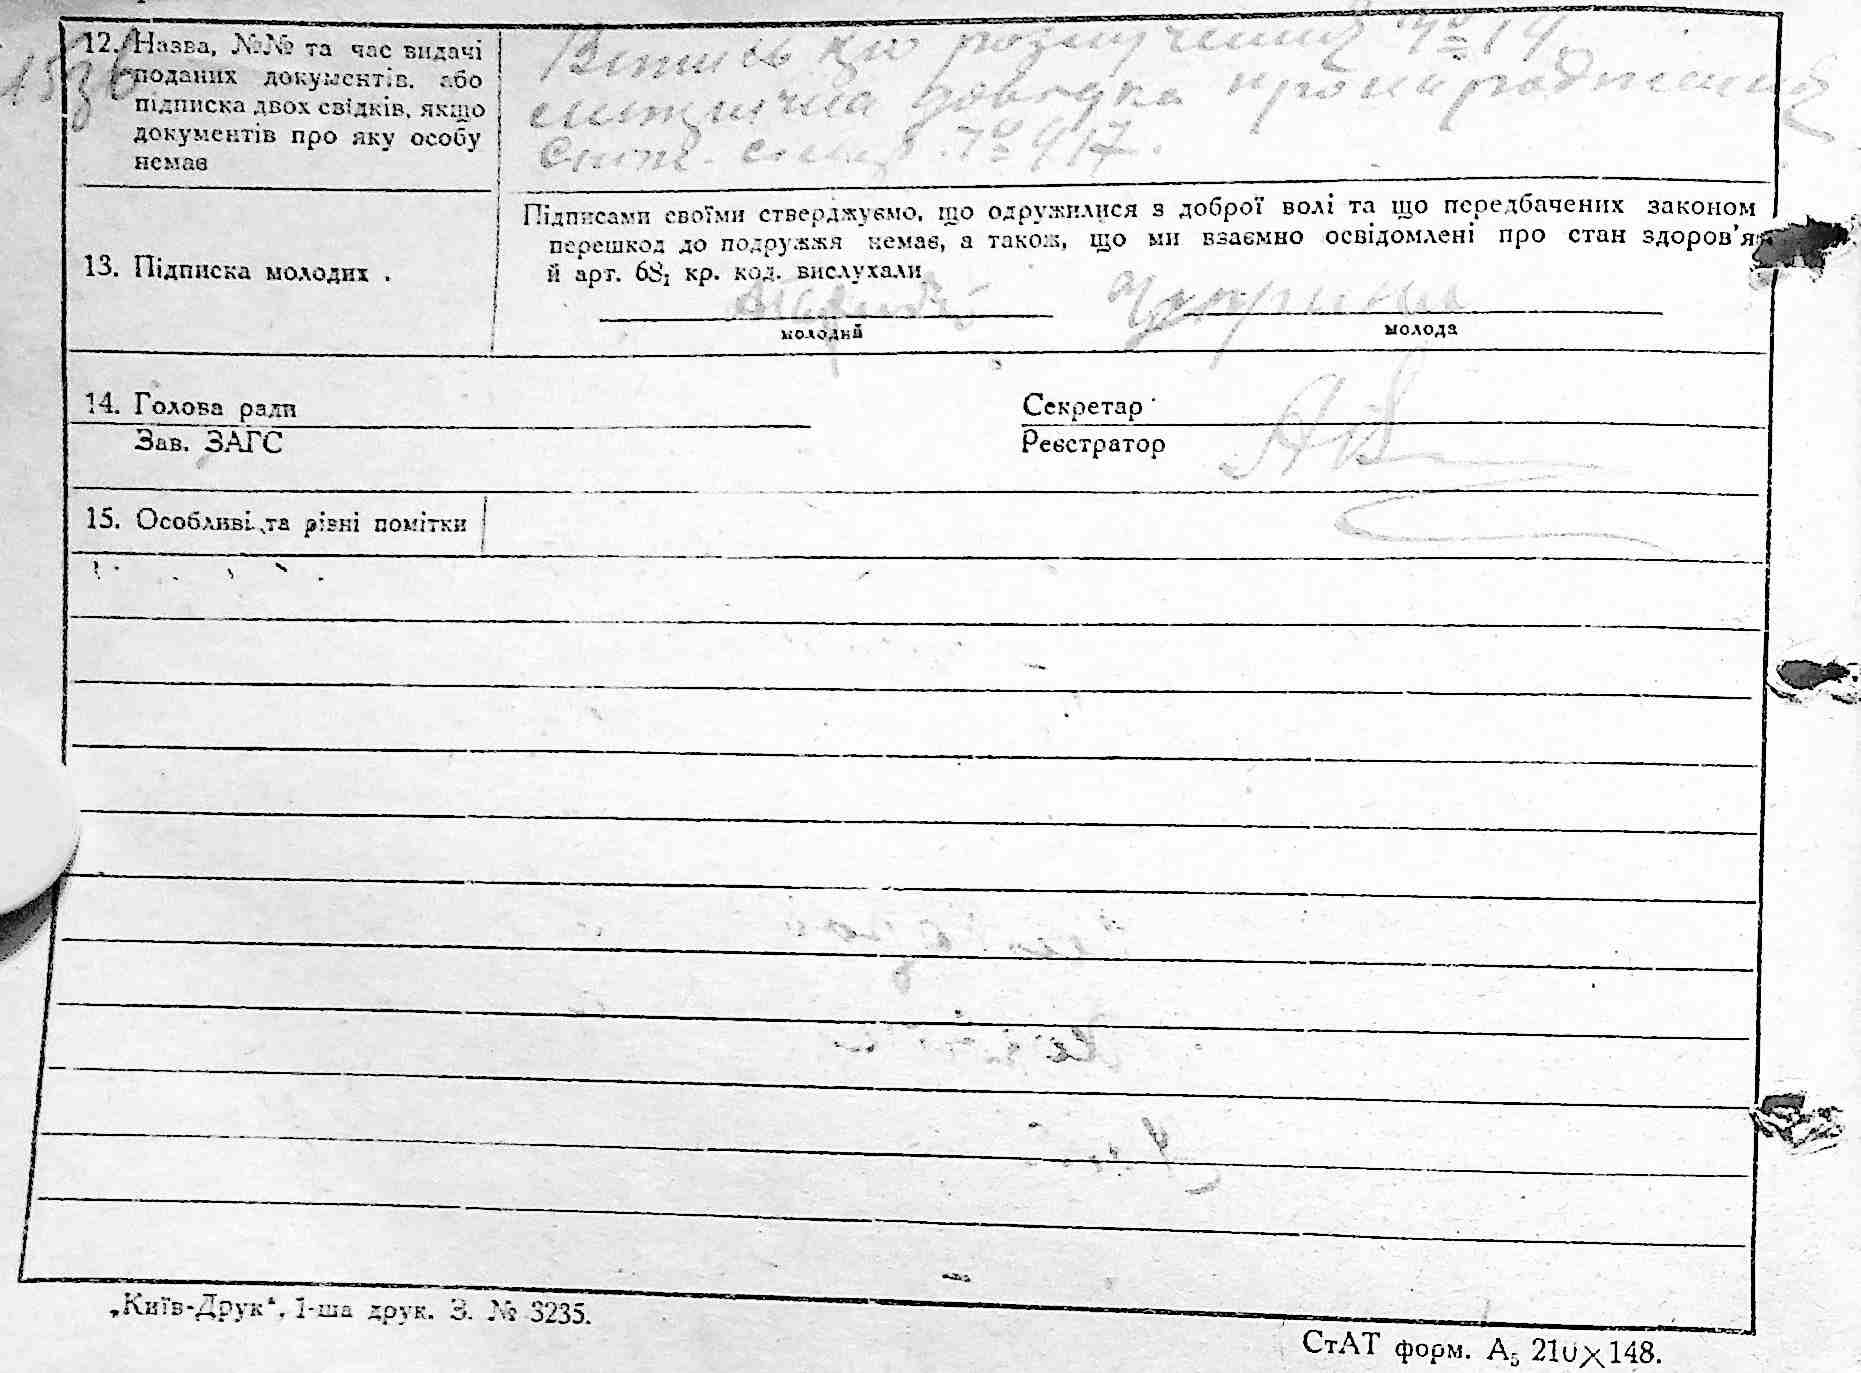 153б
12. Назва, №№ та час видачі
поданих документів, або
підписка двох свідків, якщо
документів про яку особу
немає
розлучення № 14
довідка про народження
№ 417.
13. Підписка молодих .
Підписами своїми стверджуємо, що одружилися з доброї волі та що передбачених законом
перешкод до подружжя немає, а також, що ми взаємно освідомлені про стан здоров'я
й арт. 68₁ кр. код. вислухали
молодий
молода
14. Голова ради
Секретар
Зав. ЗАГС
Реєстратор
15. Особливі та різні помітки
„Київ-Друк“, 1-ша друк. З. № 3235.
СтАТ форм. А₅ 210×148.